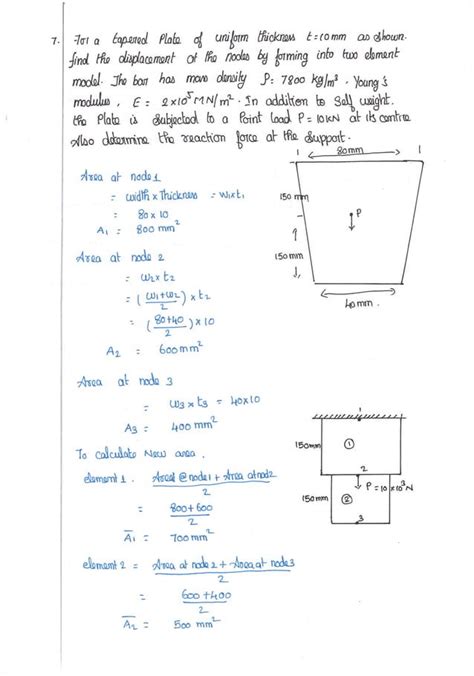 7. For a tapered Plate of uniform thickness t=10mm as shown.
find the displacement of the nodes by forming into two element
model. The bar has mass density ρ= 7800 kg/m³, Young's
modulus, E = 2x10⁵ MN/m². In addition to Self weight,
the Plate is subjected to a Point load P=10KN at its centre
Also determine the reaction force at the Support.
1 80mm 1
Area at node 1
= width x Thickness = w₁xt₁
150mm
= 80 x 10
P
A₁ = 800 mm²
Area at node 2
150mm
= w₂x t₂
= (w₁+w₂/2) x t₂
40mm.
= (80+40/2) x 10
A₂ = 600mm²
Area at node 3
= w₃ x t₃ = 40x10
A₃ = 400 mm²
150mm 1
To calculate New area.
2
element 1. Area @ node 1 + Area at nod2
2
P=10 x10³N
150mm 2
= 800+600
2
3
A̅₁ = 700mm²
element 2 = Area at node 2 + Area at node 3
2
= 600+400
2
A̅₂ = 500 mm²